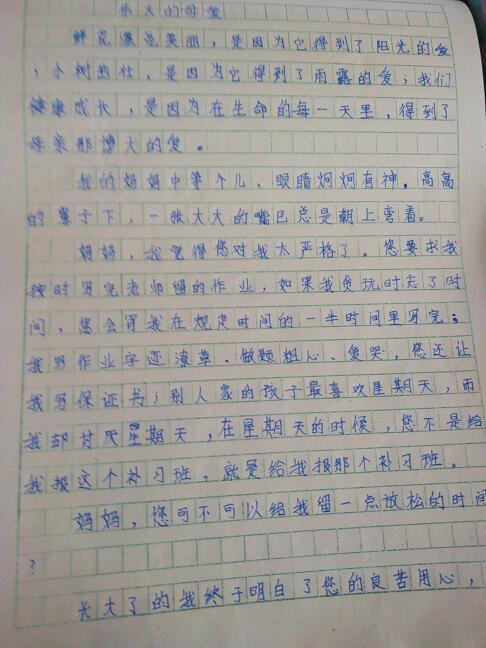 伟大的母爱
鲜花漂亮美丽，是因为它得到了阳光的爱
；小树茁壮，是因为它得到了雨露的爱；我们
健康成长，是因为在生命的每一天里，得到了
母亲那博大的爱。
我的妈妈中等个儿，眼睛炯炯有神。高高
的鼻子下，一张大大的嘴巴总是朝上弯着。
妈妈，我觉得您对我太严格了。您要求我
按时写完老师留的作业，如果我贪玩时忘了时
间，您会罚我在规定时间的一半时间里写完；
我写作业字迹潦草、做题粗心、爱哭，您还让
我写保证书；别人家的孩子最喜欢星期天，而
我却讨厌星期天，在星期天的时候，您不是给
我报这个补习班，就是给我报那个补习班。
妈妈，您可不可以给我留一点放松的时间
？
长大了的我终于明白了您的良苦用心，